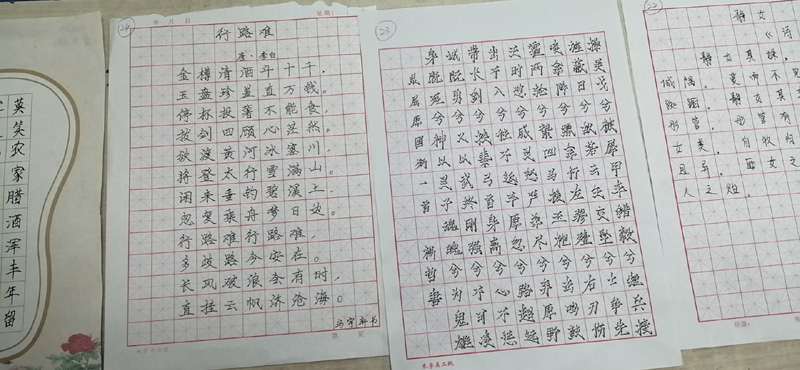 莫笑农家腊酒浑丰年留
24
年 月 日
星期
行路难
唐·李白
金樽清酒斗十千，
玉盘珍羞直万钱。
停杯投箸不能食，
拔剑四顾心茫然。
欲渡黄河冰塞川，
将登太行雪满山。
闲来垂钓碧溪上，
忽复乘舟梦日边。
行路难行路难，
多歧路今安在。
长风破浪会有时，
直挂云帆济沧海。
23
操吴戈兮被犀甲车错毂兮短兵接
旌蔽日兮敌若云矢交坠兮士争先
凌余阵兮躐余行左骖殪兮右刃伤
霾两轮兮絷四马援玉枹兮击鸣鼓
天时怼兮威灵怒严杀尽兮弃原野
出不入兮往不反平原忽兮路超远
带长剑兮挟秦弓首身离兮心不惩
诚既勇兮又以武终刚强兮不可凌
22
静女
《诗
静女其姝，
城隅。爱而不见
踟蹰。静女其
彤管。彤管有
女美。自牧归
且异。匪女之
人之贻。